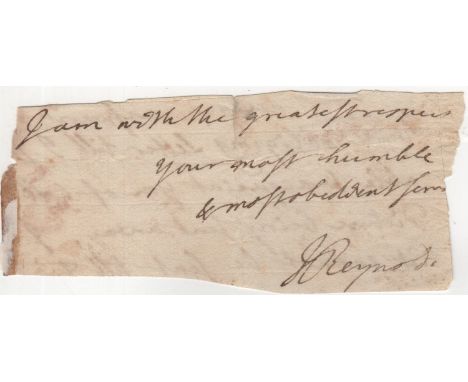 I am with the greatest respec
your most humble
& most obedient serv
JReynolds